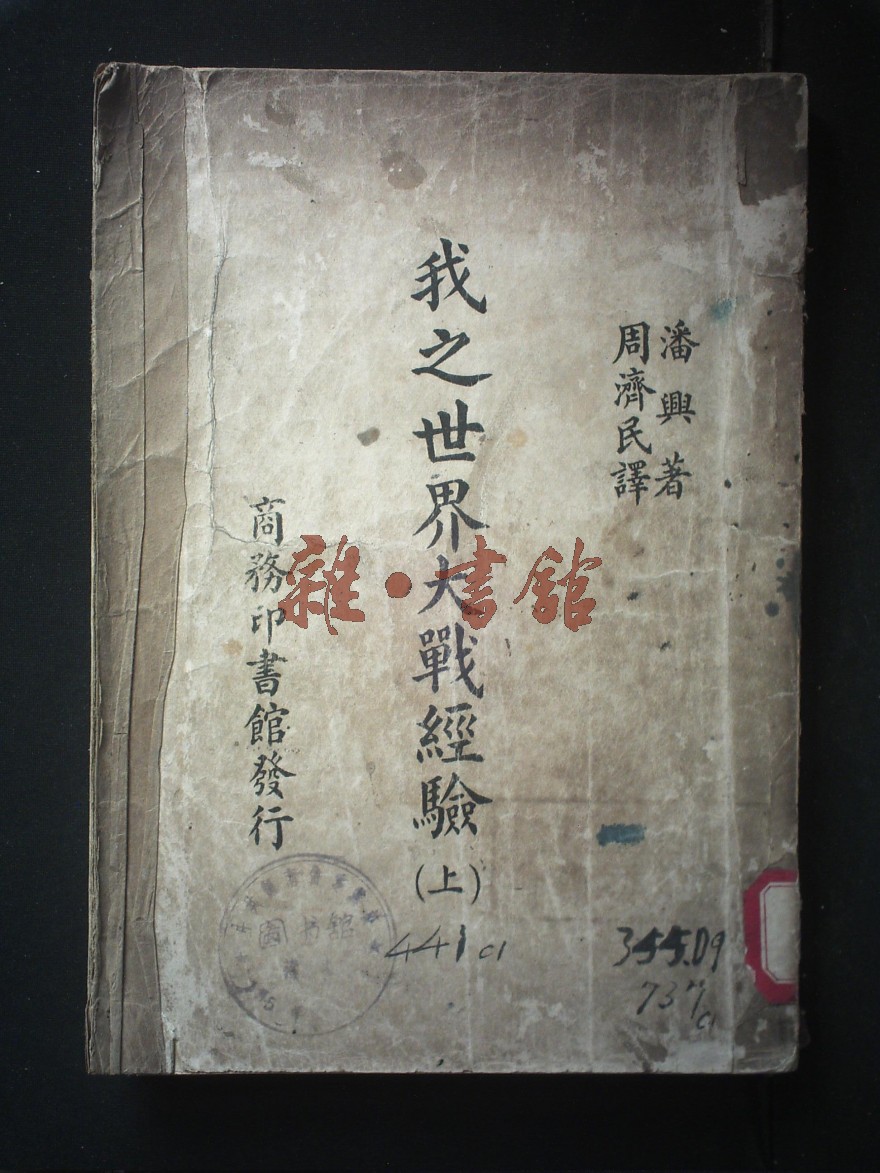 潘興著
周濟民譯
我之世界大戰經驗
(上)
商務印書館發行
雜·書館
圖书館
441 c1
355.09
737
c1